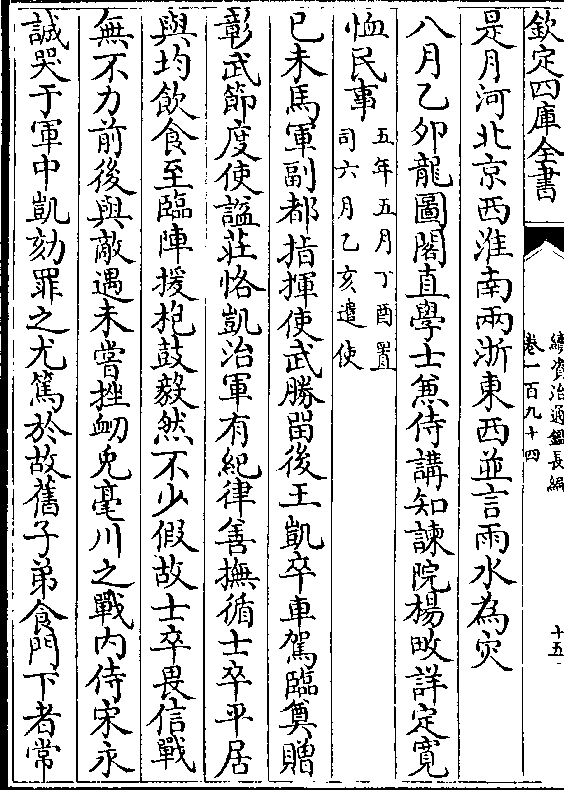 欽定四庫全書
續資治通鑑長編
卷一百九十四
十五
是月河北京西淮南兩浙東西並言雨水為灾
八月乙卯龍圖閣直學士兼侍講知諫院楊畋詳定寛
恤民事
五年五月丁酉置
司六月乙亥遣使
已未馬軍副都指揮使武勝留後王凱卒車駕臨奠贈
彰武節度使諡莊恪凱治軍有紀律善撫循士卒平居
與均飲食至臨陣援枹鼓毅然不少假故士卒畏信戰
無不力前後與敵遇未嘗挫衂兔毫川之戰内侍宋永
誠哭于軍中凱劾罪之尤篤於故舊子弟食門下者常